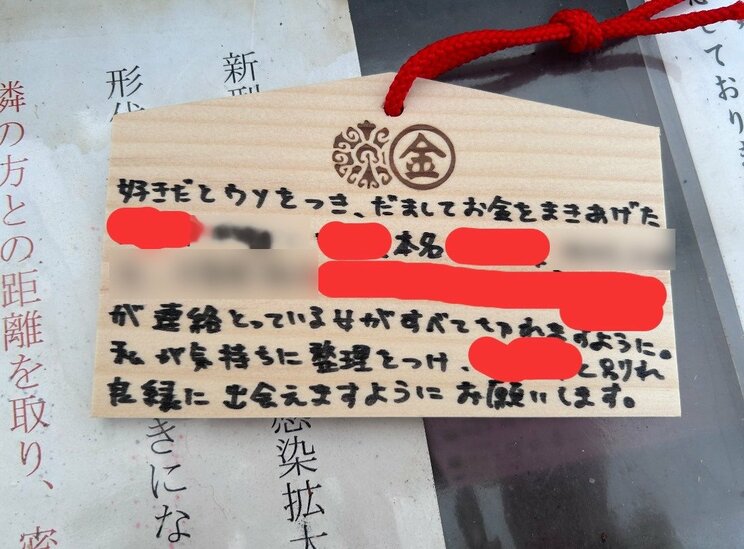 金
好きだとウソをつき、だましてお金をまきあげた
本名
が連絡とっている女がすべて切れますように。
私が気持ちに整理をつけ、と別れ
良縁に出会えますようにお願いします。
しており
新型
感染拡大
形代
きにな
隣の方との距離を取り、密